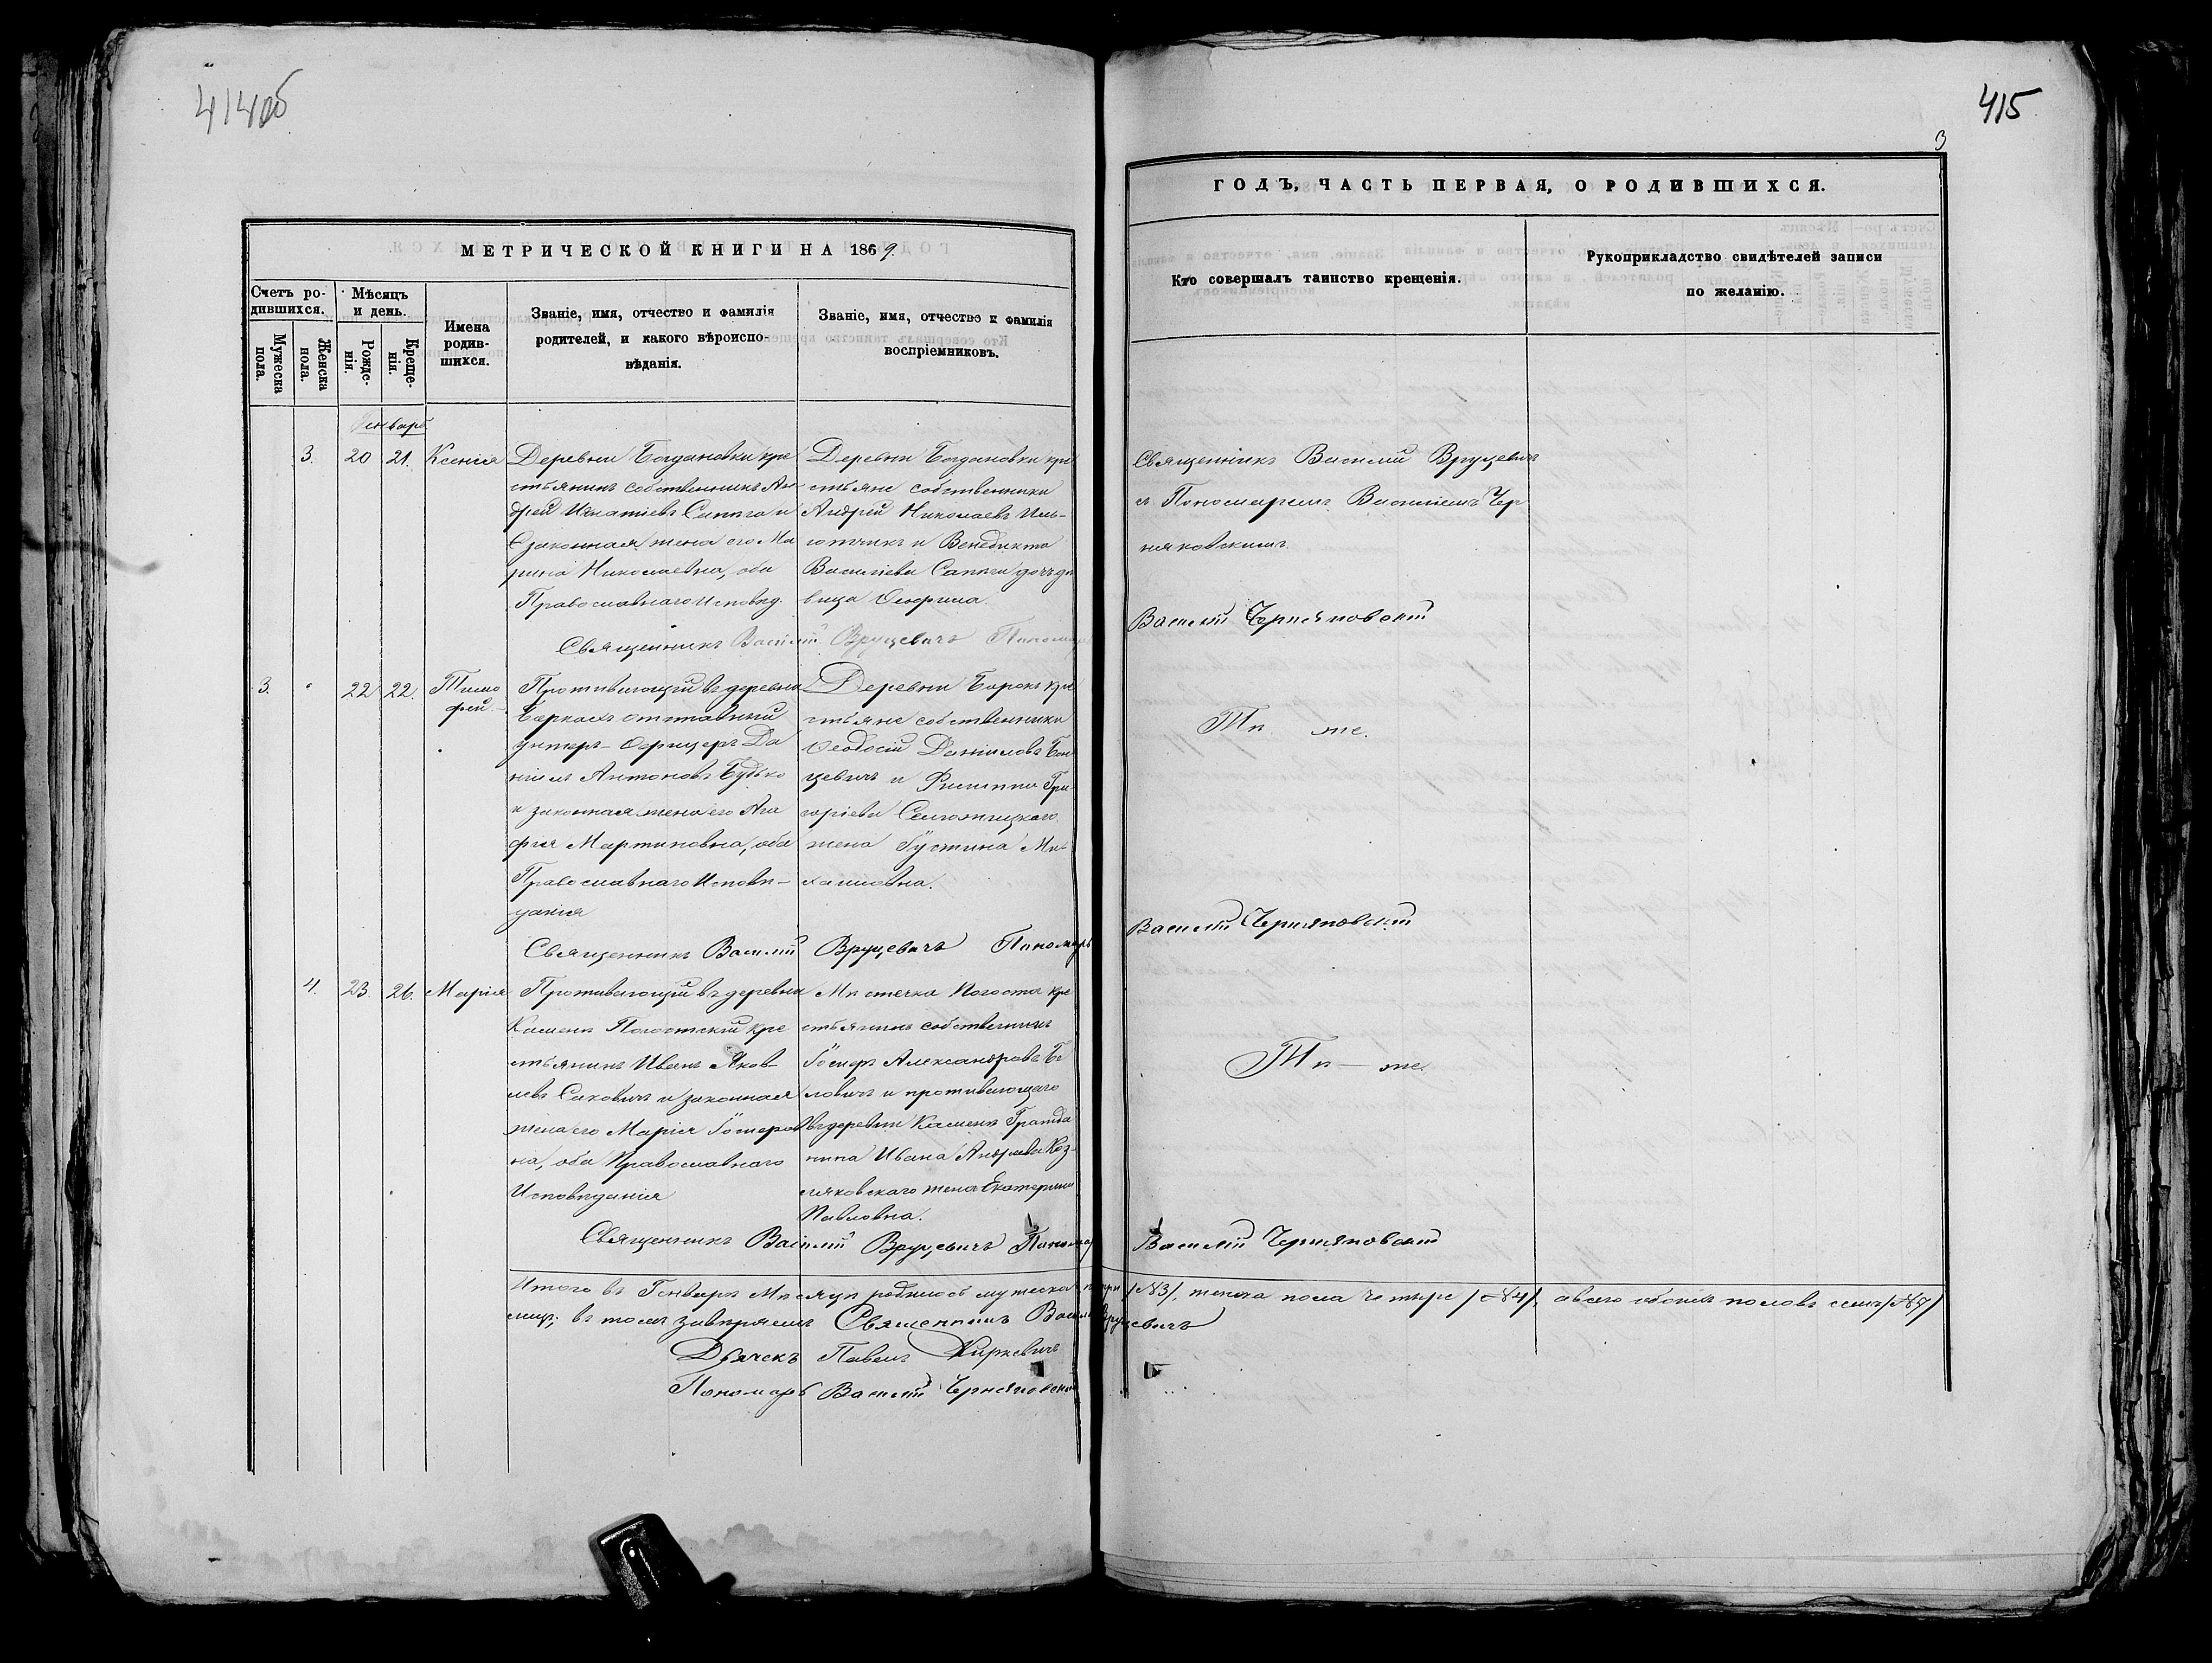 414об
МЕТРИЧЕСКОЙ КНИГИ НА 1869.
Счетъ ро-
дившихся.
Мужеска
пола.
Женска
пола.
Мѣсяцъ
и день.
Рожде-
нія.
Креще-
нія.
Имена
родив-
шихся.
Званіе, имя, отчество и фамилія
родителей, и какого вѣроиспо-
вѣданія.
Званіе, имя, отчество и фамилія
воспріемниковъ.
Генварь
3. 20 21. Ксенія
Деревни Богдановки кре
стьянинъ собственникъ Ан-
дрей Игнатіевъ Сапега и
законная жена его Ма
рина Николаевна, оба
Православнаго исповѣд.
Деревни Богдановки кре
стьяне собственники
Андрей Николаевъ Иль-
ютчикъ и Венедикта
Василіева Сапеги дочь дѣ
вица Онюрина.
Священникъ Василій Вруцевичъ Пономарь
3. 22 22. Тимо
фей.
Проживающій въ деревни
Боркахъ отставный
унтеръ-Офицеръ Да
ніилъ Антоновъ Будько
и законная жена его Ага
фія Мартиновна, оба
Православнаго Исповѣ-
данія
Деревни Борокъ кре
стьяне собственники
Ѳеодосій Даніиловъ
цевичъ и Филиппа Гри
горіева
жена Іустина Ми-
хаиловна.
Священникъ Василій Вруцевичъ Пономарь
4. 23. 26. Марія
Проживающій въ деревни
Камень Погостскій кре
стьянинъ Иванъ Яков-
левъ Саковичъ и законная
жена его Марія Іосифов
на, оба Православнаго
Исповѣданія
Мѣстечка Погоста кре
стьянинъ собственникъ
Іосифъ Александровъ Бо
ловичъ и проживающаго
въ деревни Камень Гражда
нина Ивана Андреева Коз-
ляковскаго жена Екатерина
Павловна.
Священникъ Василій Вруцевичъ Пономарь
Итого въ Генварѣ Мѣсяцѣ родилось мужеска три
въ томъ завѣряемъ Священникъ Василій Вруцевичъ
Дьячекъ Павелъ Жиркевичъ
Пономарь Василій Черняковскій
415
3
ГОДЪ, ЧАСТЬ ПЕРВАЯ, О РОДИВШИХСЯ.
Кто совершалъ таинство крещенія.
Рукоприкладство свидѣтелей записи
по желанію.
Священникъ Василій Вруцевичъ
съ Пономаремъ Василіемъ Чер
няковскимъ.
Василій Черняковскій
Тѣ же.
Василій Черняковскій
Тѣ-же.
Василій Черняковскій
/№3/, женска пола четыре /№4/, а всего обоихъ половъ семь /№7/